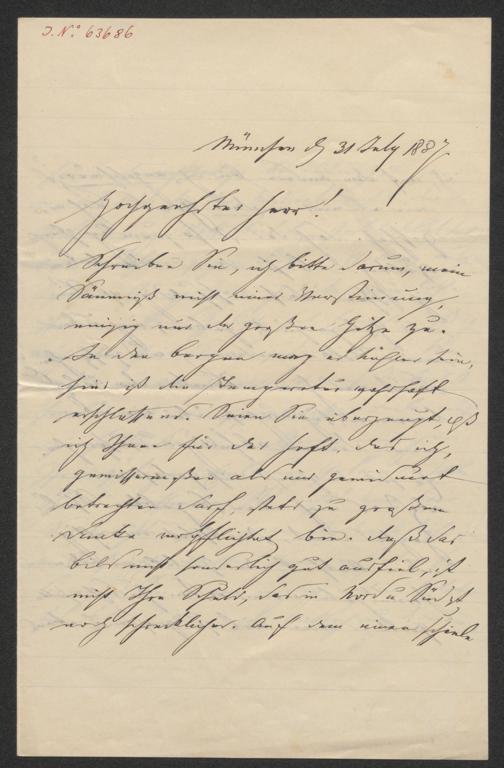 J. N.º 63686
München d 31 July 1887
Hochgeehrter Herr!
Schreiben Sie, ich bitte darum, mein
Säumniß nicht einer Verstimmung,
einzig nur der großen Hitze zu.
In den Bergen mag es kühler sein,
hier ist die Temperatur wahrhaft
erschlaffend. Seien Sie überzeugt, daß
ich Ihnen für das Heft, das ich,
gewissermaßen als mir gewidmet
betrachten darf, stets zu großem
Danke verpflichtet bin. Daß das
Bild nicht sonderlich gut ausfiel, ist
nicht Ihre Schuld, das in Nord u Süd ist
noch schrecklicher. Auf dem einen schiele